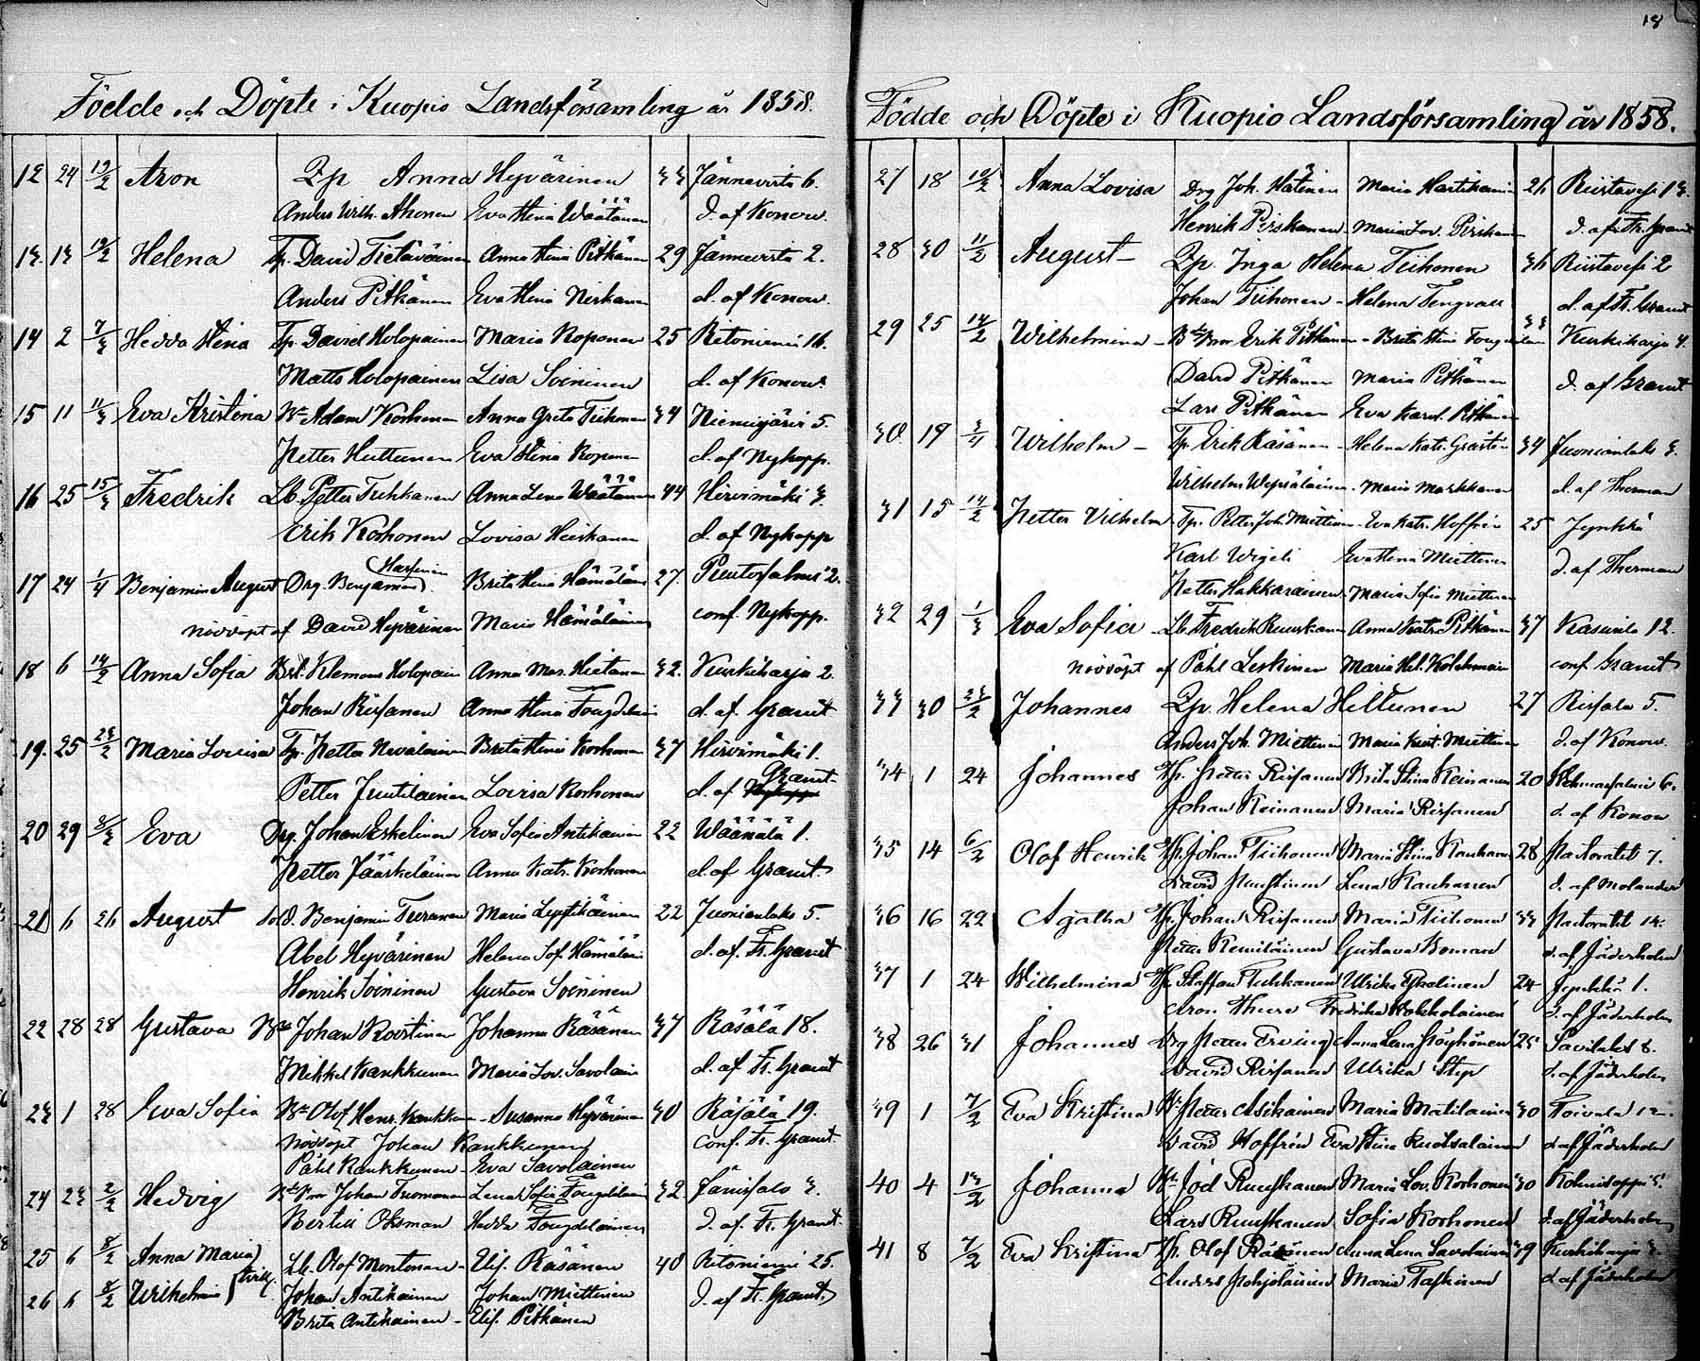 Födde och Döpte i Kuopio Landsförsamling år 1858.
12 24 13/2 Aron Qp Anna Hyvärinen 33 Jännevirta 6.
Anders Wilh. Ahonen Eva Stina Wäätänen d. af Konow.
13. 13 13/2 Helena Tp. David Tietäväinen Anna Stina Pitkänen 29 Jännevirta 2.
Anders Pitkänen Eva Stina Niskanen d. af Konow.
14 2 7/3 Hedda Stina Tp. David Holopainen Maria Roponen 25 Retoniemi 16.
Matts Holopainen Lisa Soininen d. af Konow.
15 11 11/3 Eva Kristina Adam Korhonen Anna Greta Tiihonen 34 Niemisjärvi 5.
Petter Huttunen Eva Stina Roponen d. af Nykopp.
16 25 15/3 Fredrik Lb. Petter Tuhkanen Anna Lena Wäätänen 44 Hirvimäki 3.
Erik Korhonen Lovisa Heiskanen d. af Nykopp
17 24 1/4 Benjamin August Drg. Benjamin Brita Stina Hämäläinen 27. 2.
nöddöpt af David Hyvärinen Maria Hämäläinen conf. Nykopp.
18 6 14/2 Anna Sofia Klemens Holopainen Anna Mar. Hietanen 32. Kurkiharju 2
Johan Riisanen Anna Stina Fougdelainen d. af Granit
19. 25 23/2 Maria Lovisa Tp. Petter Nevalainen Brita Stina Korhonen 37 Hirvimäki 1.
Petter Juutilainen Lovisa Korhonen d. af Granit
20 29 Eva Drg. Johan Eskelinen Eva Sofia Antikainen 22 Wäänälä 1.
Petter Jääskeläinen Anna Katr. Korhonen d. af Granit.
21 6 26 August Sold. Benjamin Turunen Maria 22 Juonionlaks 5.
Abel Hyvärinen Helena Sof. Hämäläinen d. af Fr. Granit
Henrik Soininen Gustava Soininen
22 28 28 Gustava Johan Koistinen Johanna Räsänen 37 Räsälä 18.
Mikkel Kankkunen Maria Lov. Savolainen d. af Fr. Granit
23 1 28 Eva Sofia Olof Henr. Kankkunen Susanna Hyvärinen 30 Räsälä 19.
nöddöpt Johan Kankkunen conf. Fr. Granit.
Påhl Kankkunen Eva Savolainen
24 23 2/2 Hedvig Johan Tuomanen Lena Sofia Fougdelainen 32 Jänissalo 3.
Bertil Oksman Hedda Fougdelainen d. af Fr. Granit
25 6 8/2 Anna Maria Lb. Olof Montonen Elis. Räsänen 40 Retoniemi 25.
26 6 8/2 Wilhelmin tvill. Johan Antikainen Johan Miettinen d. af Fr. Granit.
Brita Antikainen Elis. Pitkänen
18
Födde och Döpte i Kuopio Landsförsamling år 1858.
27 18 10/2 Anna Lovisa Drg Joh. Hätinen Maria Hartikainen 26 Riistavesi 13.
Henrik Pirskanen Maria Lov. Pirskanen d. af Fr. Granit
28 30 11/2 August Qp. Inga Helena Tiihonen 36 Riistavesi 2
Johan Tiihonen Helena Tengvall d. af Fr. Granit
29 25 14/2 Wilhelmina Erik Pitkänen Brita Stina 33 Kurkiharju 4.
David Pitkänen Maria Pitkänen d. af Granit
Lars Pitkänen Eva Karol. Pitkänen
30 19 3/4 Wilhelm Tp Erik Räsänen Helena Katr. Gråsten 34 Juonionlaks 3.
Wilhelm Wepsäläinen Maria Markkanen d. af Therman
31 15 14/2 Petter Vilhelm Tp. Petter Joh. Miettinen Eva Katr. Hoffrén 25 Jynkkä
Karl Wigeli Eva Stina Miettinen d. af Therman
Petter Hakkarainen Maria Sofia Miettinen
32 29 1/3 Eva Sofia Lb. Fredrik Ruuskanen Anna Katr. Pitkänen 37 Kasurila 12.
nöddöpt af Påhl Leskinen Maria Hel. Kolehmainen conf. Granit
33 30 23/2 Johannes Qp. Helena Hiltunen 27 Riisala 5.
Anders Joh. Miettinen Maria Krist. Miettinen d. af Konow.
34 1 24 Johannes Petter Riisanen Brita Stina Keinanen 20 Wehmasalmi 6.
Johan Keinanen Maria Riisanen d. af Konow
35 14 6/2 Olof Henrik Johan Tiihonen Maria Stina Kauhanen 28 Pastoratet 7.
David Puustinen Lena Kauhanen d. af Molander
36 16 22 Agatha Johan Riisanen Maria Tiihonen 33 Pastoratet 14.
Petter Remiläinen Gustava Boman d. af Jäderholm
37 1 24 Wilhelmina Staffan Tuhkanen Ulrika Eskelinen 24 Jynkkä 1.
Aron Thure Fredrika Kokkolainen d. af Jäderholm
38 26 31 Johannes Drg Petter Erving Anna Lena Pöyhönen 25 Savilaks 8.
David Riisanen Ulrika d. af Jäderholm
39 1 7/2 Eva Kristina Petter Asikainen Maria Matilainen 30 Toivala 12.
David Hoffrén Eva Stina Ruotsalainen d. af Jäderholm
40 4 13/2 Johanna Jöd Ruuskanen Maria Lov. Korhonen 30 Kolmisoppi 5.
Lars Ruuskanen Sofia Korhonen d. af Jäderholm
41 8 7/2 Eva Kristina Olof Räsänen Anna Lena Savolainen 39 Kurkiharju 3.
Anders Pohjolainen Maria Taskinen d. af Jäderholm